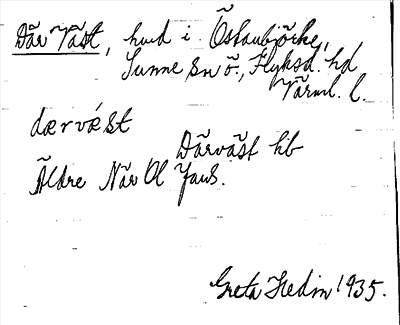 Där Väst, hmd i Östanbjörke,
Sunne sn ö., Fryksd. hd
Värml. l.
dærvést
Därväst hb
Äldre När Ol Jans.
Greta Hedin 1935.